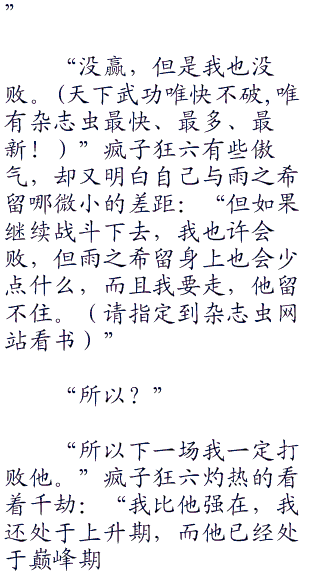 ”
“没赢，但是我也没
败。(天下武功唯快不破,唯
有杂志虫最快、最多、最
新！)”疯子狂六有些傲
气，却又明白自己与雨之希
留哪微小的差距：“但如果
继续战斗下去，我也许会
败，但雨之希留身上也会少
点什么，而且我要走，他留
不住。（请指定到杂志虫网
站看书）”
“所以？”
“所以下一场我一定打
败他。”疯子狂六灼热的看
着千劫：“我比他强在，我
还处于上升期，而他已经处
于巅峰期